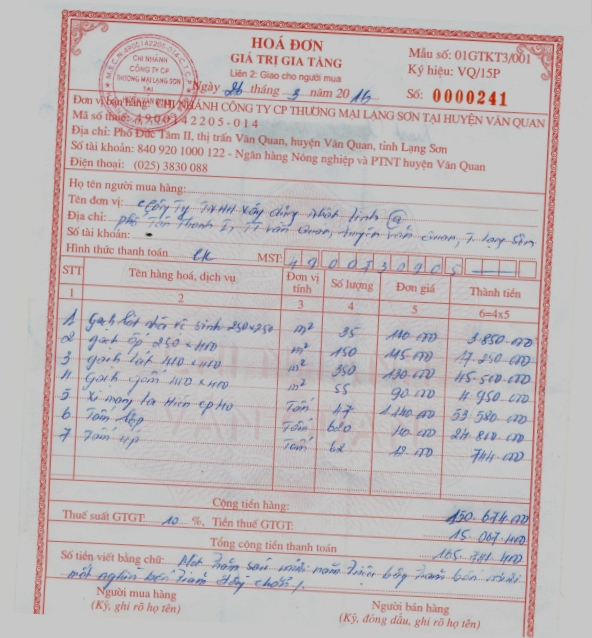 HOÁ ĐƠN
GIÁ TRỊ GIA TĂNG
Liên 2: Giao cho người mua
Ngày 26 tháng 3 năm 2016
Mẫu số: 01GTKT3/001
Ký hiệu: VQ/15P
Số: 0000241
CHI NHÁNH
CÔNG TY CP
THƯƠNG MẠI LẠNG SƠN
TẠI
Đơn vị bán hàng: CHI NHÁNH CÔNG TY CP THƯƠNG MẠI LẠNG SƠN TẠI HUYỆN VĂN QUAN
Mã số thuế: 4900142205-014
Địa chỉ: Phố Đức Tâm II, thị trấn Văn Quan, huyện Văn Quan, tỉnh Lạng Sơn
Số tài khoản: 840 920 1000 122 - Ngân hàng Nông nghiệp và PTNT huyện Văn Quan
Điện thoại: (025) 3830 088
Họ tên người mua hàng:
Tên đơn vị: Công ty TNHH xây dựng
Địa chỉ: phố Tân Thanh I, TT Văn Quan, huyện Văn Quan, T. Lạng Sơn
Số tài khoản:
Hình thức thanh toán CK MST:
STT Tên hàng hoá, dịch vụ Đơn vị tính Số lượng Đơn giá Thành tiền
1 2 3 4 5 6=4x5
1 gạch lát vệ sinh 250x250 m² 35 110.000 3.850.000
2 gạch ốp 250x400 m² 150 115.000 17.250.000
3 gạch lát 400x400 m² 350 130.000 45.500.000
4 Gạch gốm 400x400 m² 55 90.000 4.950.000
5 Xi măng Tấn 47 1.140.000 53.580.000
6 Tấm Tấm 620 40.000 24.800.000
7 Tấm úp Tấm 62 12.000 744.000
Cộng tiền hàng: 150.674.000
Thuế suất GTGT: 10 %, Tiền thuế GTGT: 15.067.400
Tổng cộng tiền thanh toán 165.741.400
Số tiền viết bằng chữ: Một trăm sáu mươi năm triệu bảy trăm bốn mươi
một nghìn bốn trăm đồng chẵn /.
Người mua hàng Người bán hàng
(Ký, ghi rõ họ tên) (Ký, đóng dấu, ghi rõ họ tên)